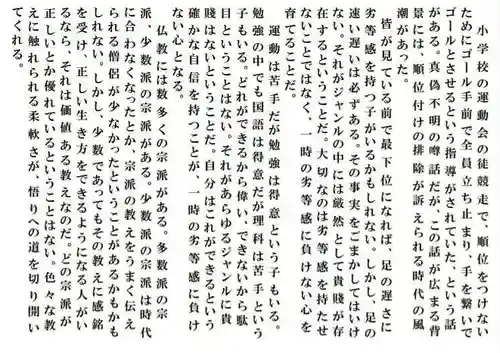 小学校の運動会の徒競走で、順位をつけない
ためにゴール手前で全員立ち止まり、手を繋いで
ゴールとさせるという指導がされていた、という話
がある。真偽不明の噂話だが、この話が広まる背
景には、順位付けの排除が訴えられる時代の風
潮があった。
皆が見ている前で最下位になれば、足の遅さに
劣等感を持つ子がいるかもしれない。しかし、足の
速い遅いは必ずある。その事実をごまかしてはいけ
ない。それがジャンルの中には厳然として貴賤が存
在するということだ。大切なのは劣等感を持たせ
ないことではなく、一時の劣等感に負けない心を
育てることだ。
運動は苦手だが勉強は得意という子もいる。
勉強の中でも国語は得意だが理科は苦手という
子もいる。どれができるから偉い、できないから駄
目ということはない。それがあらゆるジャンルに貴
賤はないということだ。自分はこれができるという
確かな自信を持つことが、一時の劣等感に負け
ない心となる。
仏教には数多くの宗派がある。多数派の宗
派、少数派の宗派がある。少数派の宗派は時代
に合わなくなったとか、宗派の教えをうまく伝え
られる僧侶が少なかったということがあるかもかも
しれない。しかし、少数であってもその教えに感銘
を受け、正しい生き方をできるようになる人がい
るなら、それは価値ある教えなのだ。どの宗派が
正しいとか優れているということはない。色々な教
えに触れられる柔軟さが、悟りへの道を切り開い
てくれる。